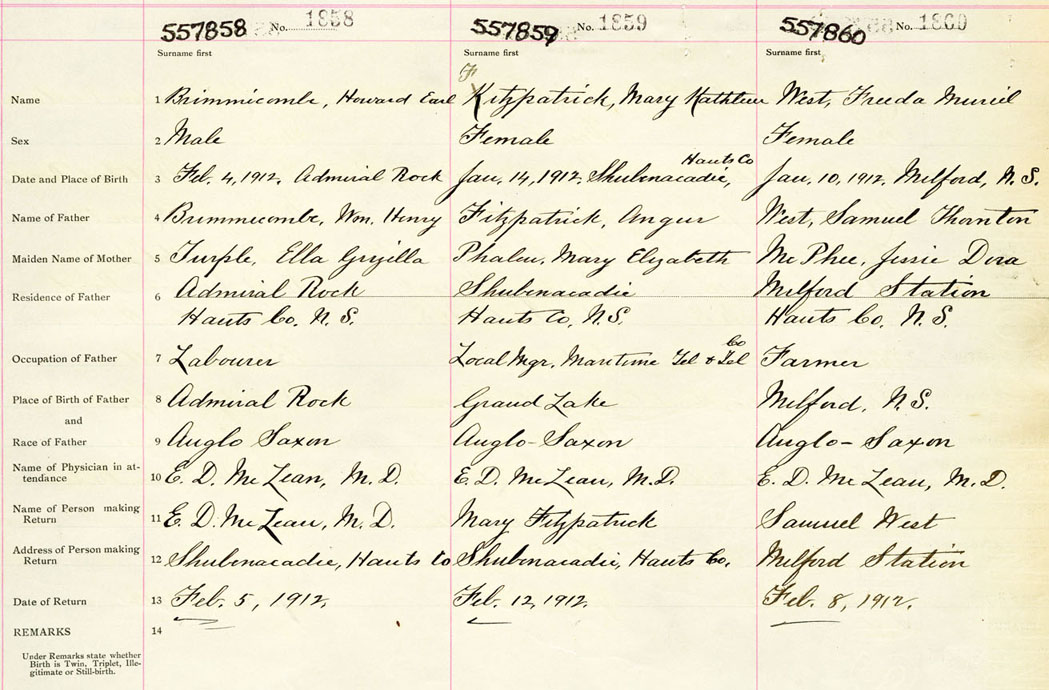 557858 No. 1858 557859 No. 1859 557860 No. 1860
Surname first Surname first Surname first
F
Name 1 Brimmicombe, Howard Earl Kitzpatrick, Mary Kathleen West, Freeda Muriel
Sex 2 Male Female Female
Hants Co
Date and Place of Birth 3 Feb. 4, 1912. Admiral Rock Jan. 14, 1912. Shubenacadie, Jan. 10, 1912. Milford, N.S.
Name of Father 4 Brimmicombe, Wm. Henry Fitzpatrick, Angus West, Samuel Thornton
Maiden Name of Mother 5 Turple, Ella Phalen, Mary Elizabeth McPhee, Jessie Dora
Residence of Father 6 Admiral Rock Shubenacadie Milford Station
Hants Co. N.S. Hants Co, N.S. Hants Co. N.S.
Co
Occupation of Father 7 Labourer Local Mgr. Maritime Tel & Tel Farmer
Place of Birth of Father 8 Admiral Rock Grand Lake Milford, N.S.
and
Race of Father 9 Anglo Saxon Anglo-Saxon Anglo-Saxon
Name of Physician in at-
tendance 10 E. D. McLean, M.D. E.D. McLean, M.D. E. D. McLean, M.D.
Name of Person making
Return 11 E. D. McLean, M.D. Mary Fitzpatrick Samuel West
Address of Person making
Return 12 Shubenacadie, Hants Co Shubenacadie, Hants Co. Milford Station
Date of Return 13 Feb. 5, 1912. Feb. 12, 1912. Feb. 8, 1912.
REMARKS 14
Under Remarks state whether
Birth is Twin, Triplet, Ille-
gitimate or Still-birth.